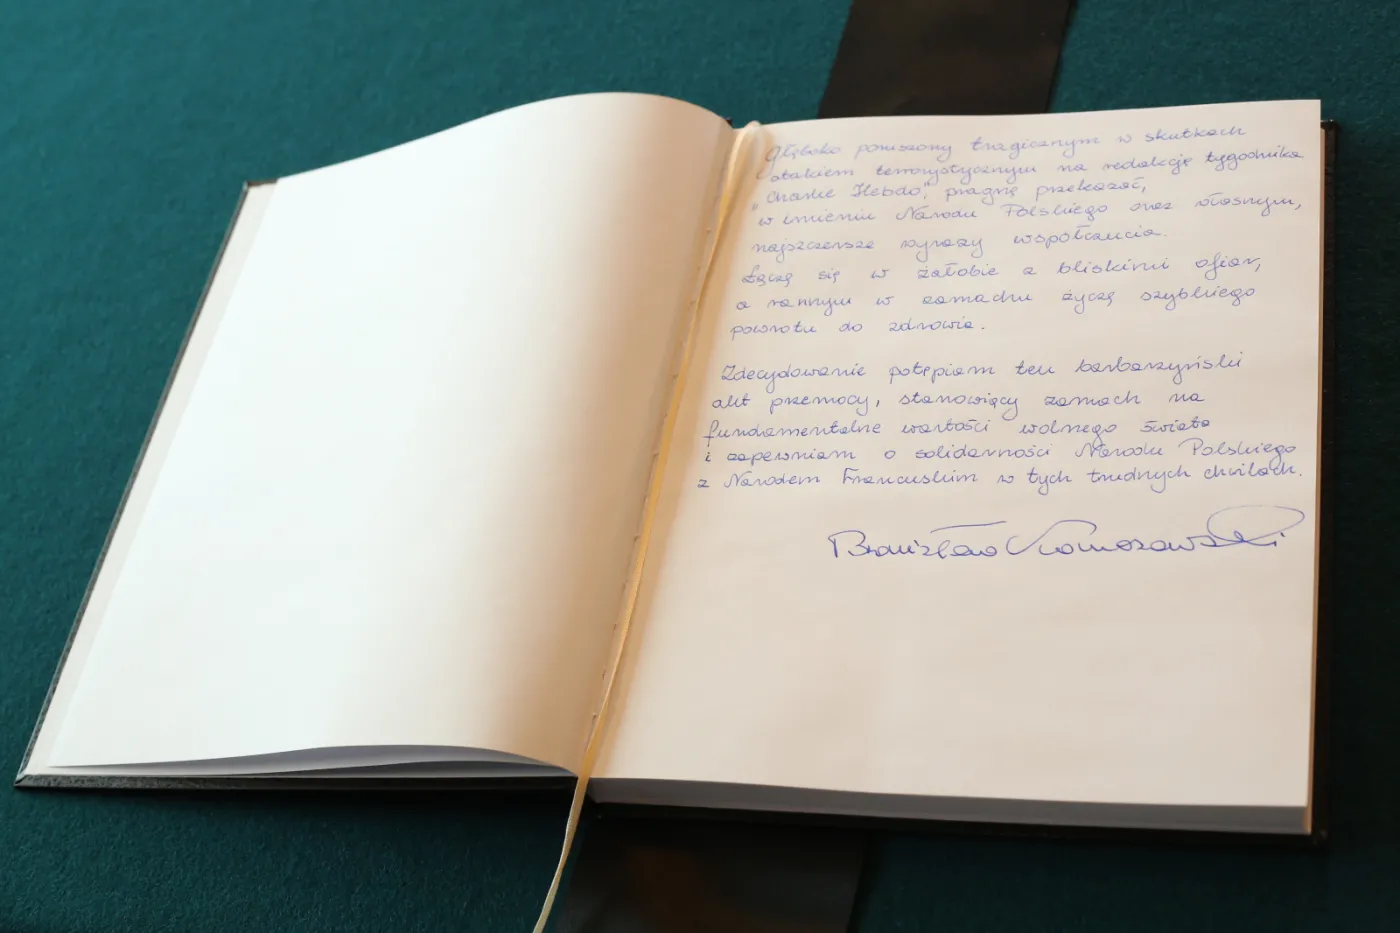 Głęboko poruszony tragicznym w skutkach
atakiem terrorystycznym na redakcję tygodnika
„Charlie Hebdo", pragnę przekazać,
w imieniu Narodu Polskiego oraz własnym,
najszczersze wyrazy współczucia.
Łączę się w żałobie z bliskimi ofiar,
a rannym w zamachu życzę szybkiego
powrotu do zdrowia.
Zdecydowanie potępiam ten barbarzyński
akt przemocy, stanowiący zamach na
fundamentalne wartości wolnego świata
i zapewniam o solidarności Narodu Polskiego
z Narodem Francuskim w tych trudnych chwilach.
Bronisław Komorowski